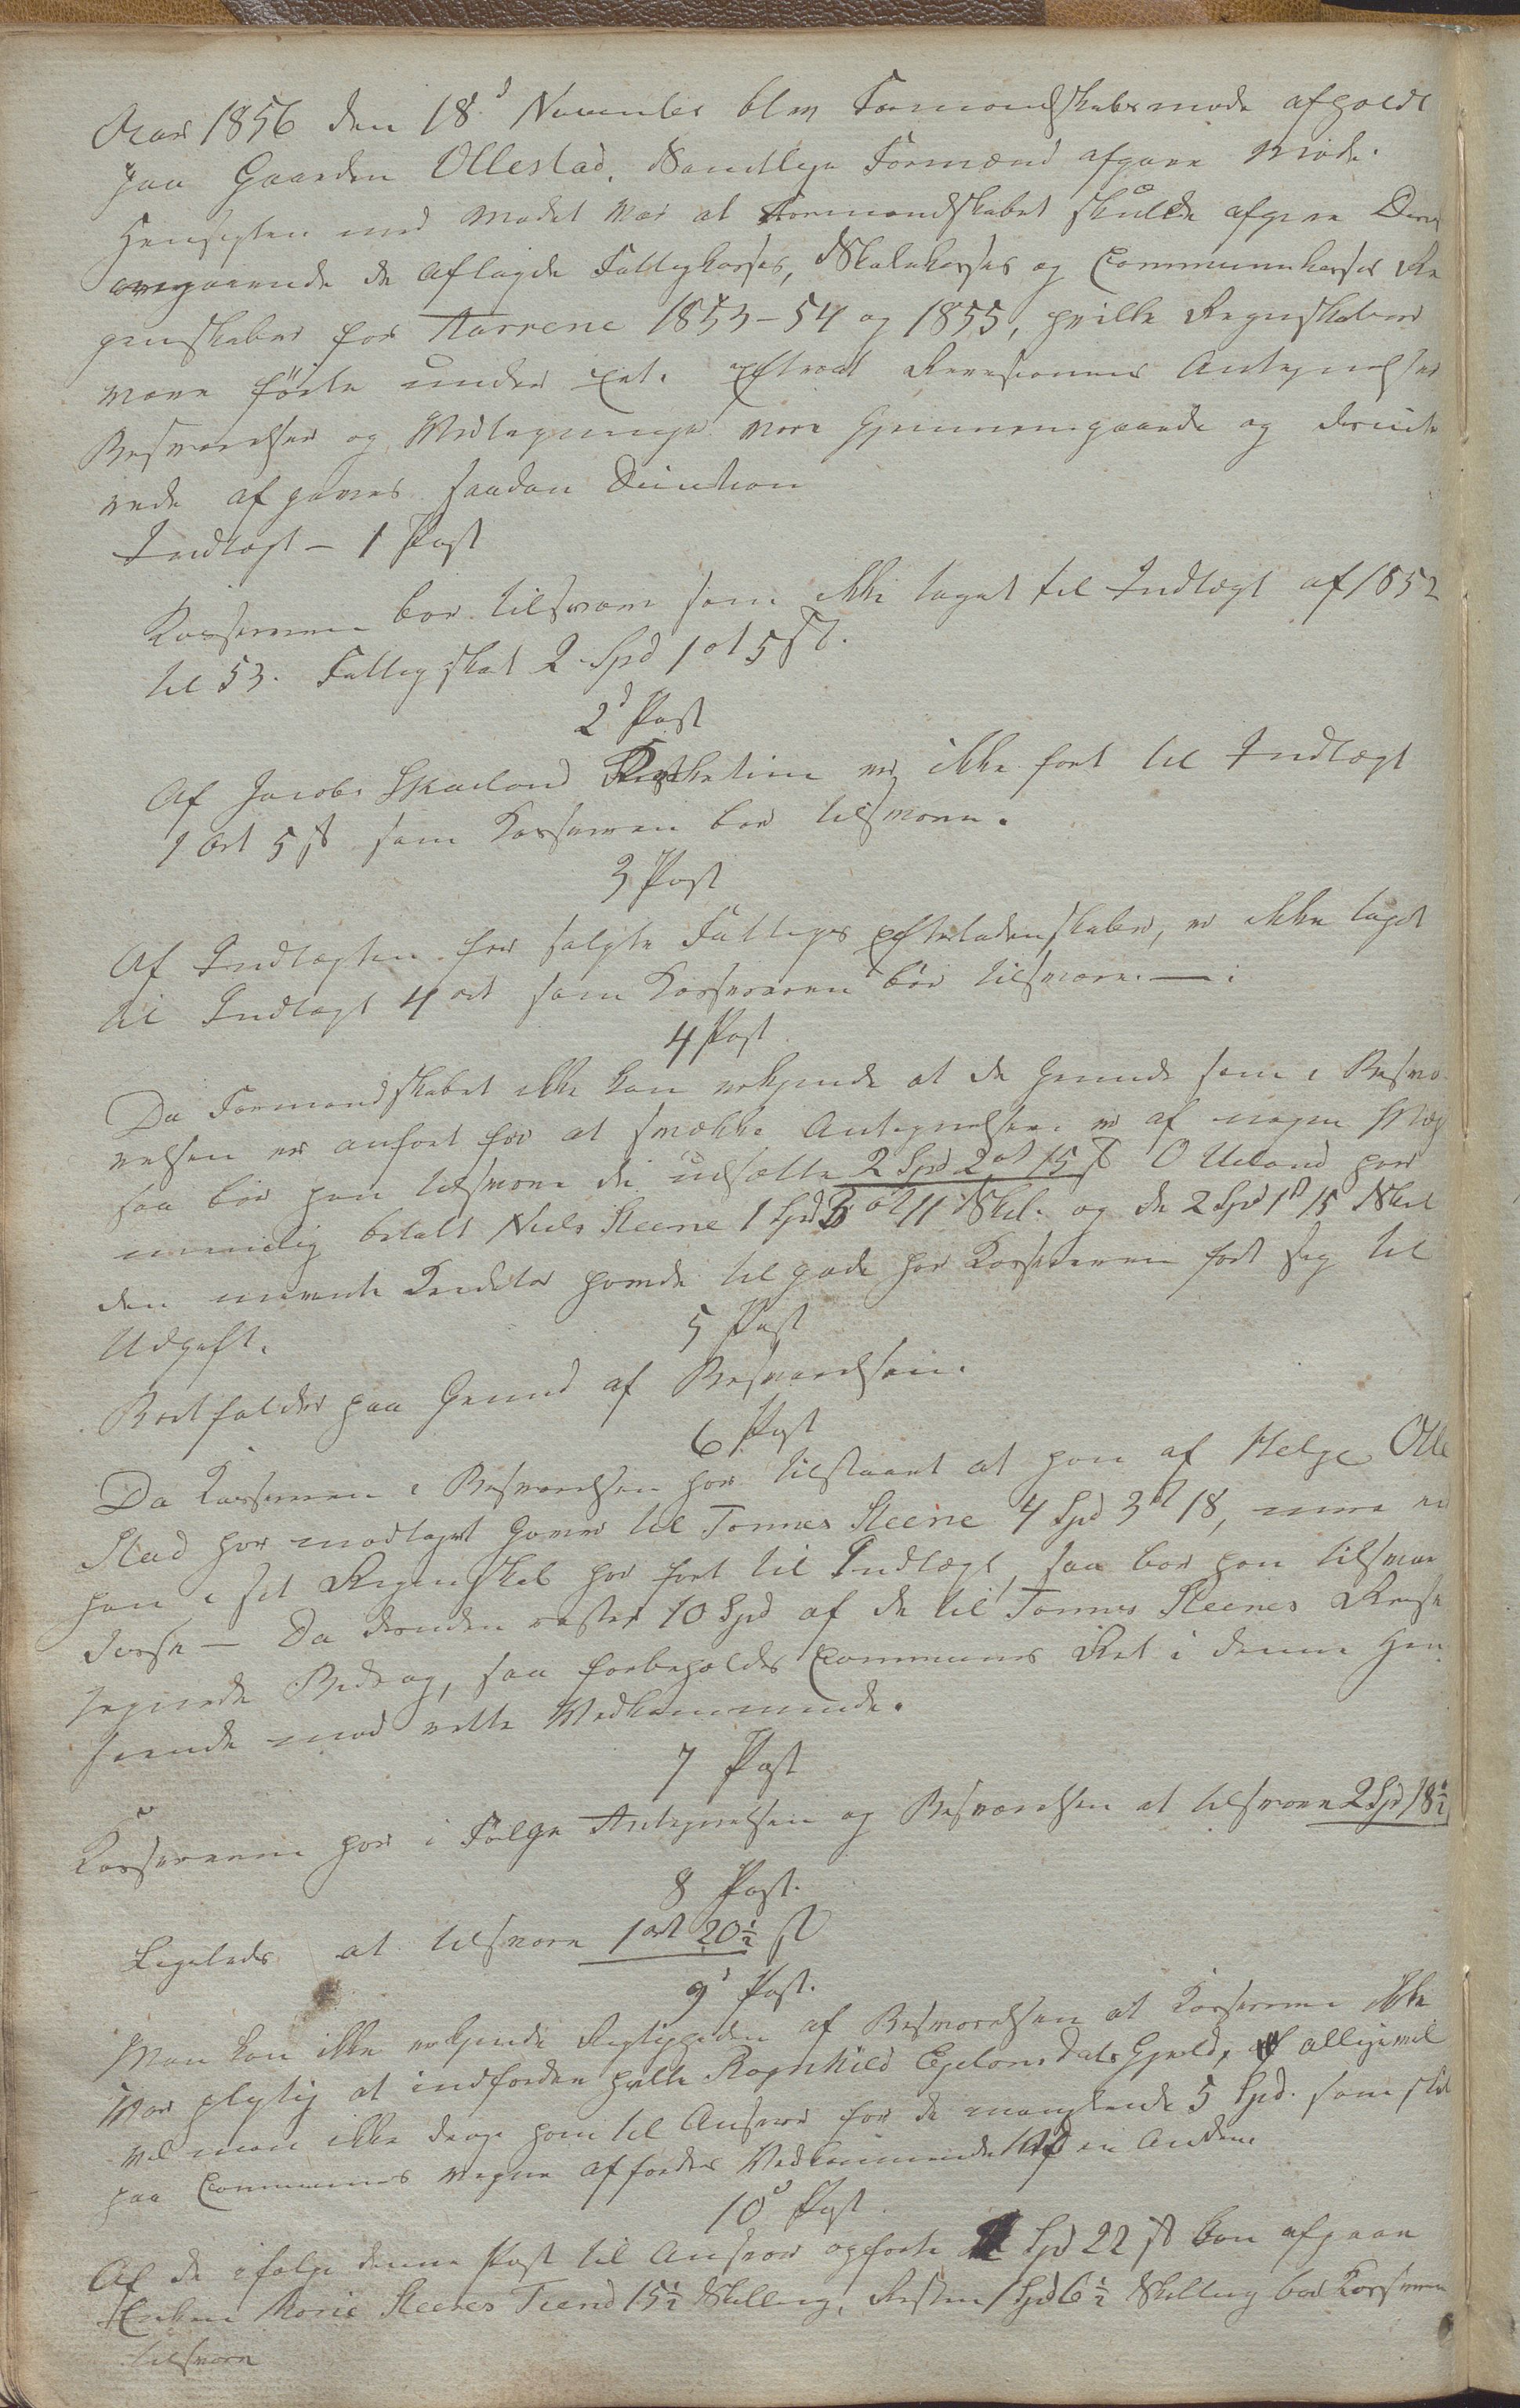 Aar 1856 den 18d November blev Formandskabsmøde afholdt
paa Gaarden Ollestad. Samtlige Formænd afgave Møde.
Hensigten med Mødet var at Formandskabet skulde afgive Deres
angaaende de aflagde Fattigkasses, Skolekasses og Communekasses Re
genskaber for Aarrene 1853-54 og 1855, hvilke Regnskaber
vare førte under et. Efterat Revisionens Antegnelser
Besvarelser og Vedtegninger vare Gjennemgaaede og
rede afgaves saadan Decision
Indtægt - 1 Post
Kasserern bør tilsvare som ikke taget til Indtægt af 1852
til 53. Fattigskat 2 Spd 1 ort 5 ß.
2d Post
Af Jacob Skailand er ikke ført til Indtægt
1 Ort 5 ß som Kassereren bør tilsvare.
3 Post
Af Indtægten for solgte Fattiges Efterladenskaber, er ikke taget
til Indtægt 4 ort som Kassereren bør tilsvare. -
4 Post
Da Formandskabet ikke kan erkjende at de Grunde som i Besva
relsen er anført for at svække Antegnelsen er af nogen Vægt
saa bør han tilsvare de udsatte 2 Spd 2 ort 15 ß O Ueland har
nemlig betalt Niels Steene 1 Spd 3 ort 11 Skil. og de 2 Spd 1 ß 15 Skil
den nævnte Creditor havde til gode har Kassereren ført sig til
Udgift.
5 Post
Bortfalder paa Grund af Besvarelsen.
6 Post
Da Kasseren i Besvarelsen har tilstaaet at han af Helge Olle
stad har modtaget Gaver til Tonnes Steene 4 Spd 3 ort 18, mere end
han i sit Regnskab har ført til Indtægt, saa bør han tilsvare
disse - Da desuden rester 10 Spd af de til Tonnes Steenes Reise
tegnede Bidrag, saa forbeholdes Communens Ret i denne Hen
seende mod rette Vedkommende.
7 Post
Kassereren har i Følge Antegnelsen og Besvarelsen at tilsvare 2 Spd 18½
8 Post.
Ligeledes at tilsvare 1 ort 20½ ß
9d Post.
Man kan ikke erkjende Rigtigheden af Besvarelsen at Kassereren ikke
var pligtig at indfordre hele Ragnhild Egelandsdals Gjeld, alligevel
vil man ikke drage ham til Ansvar for de manglende 5 Spd. som skal
paa Communens vegne affordres Vedkommende Af en Anden.
10d Post
Af de ifølge denne Post til Ansvar opførte Spd 22 ß kan afgaae
Enken Marie Steenes Tiend 15½ Skilling, Resten 1 Spd 6½ Skilling bør Kasseren
tilsvare